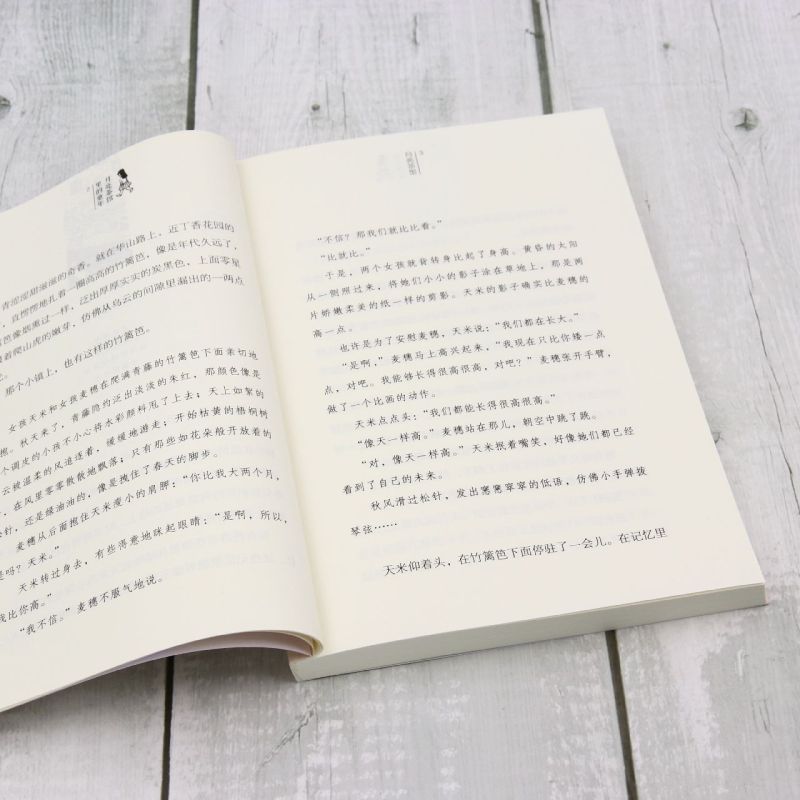 月亮茶馆
里的童年
2
青涩涩甜滋滋的奇香。就在华山路上，近丁香花园的
，直愣愣地扎着一圈高高的竹篱笆，像是年代久远了，
笆像烟熏过一样，泛出厚厚实实的炭黑色，上面零星
着爬山虎的嫩芽，仿佛从乌云的间隙里漏出的一两点
那个小镇上，也有这样的竹篱笆。
女孩天米和女孩麦穗在爬满青藤的竹篱笆下面亲切地
樵。秋天来了，青藤隐约泛出淡淡的朱红，那颜色像是
个调皮的小孩不小心将水彩颜料甩了上去；天上如絮的
云被温柔的风追逐着，缓缓地游走；开始枯黄的梧桐树
，在风里零零散散地飘落；只有那些如花朵般开放着的
松针，还是绿油油的，像是拽住了春天的脚步。
麦穗从后面抱住天米瘦小的肩脚：“你比我大两个月，
是吗？天米。”
天米转过身去，有些得意地眯起眼睛：“是啊，所以，
我比你高。”
“我不信。”麦穗不服气地说。
3
“不信？那我们就比比看。”
“比就比。”
于是，两个女孩就背转身比起了身高。黄昏的太阳
从一侧照过来，将她们小小的影子涂在草地上，那是两
片娇嫩柔美的纸一样的剪影。天米的影子确实比麦穗的
高一点。
也许是为了安慰麦穗，天米说：“我们都在长大。”
“是啊，”麦穗马上高兴起来，“我现在只比你矮一点
点，对吧。我能够长得很高很高，对吧？”麦穗张开手臂，
做了一个比画的动作。
天米点点头：“我们都能长得很高很高。”
“像天一样高。”麦穗站在那儿，朝空中跳了跳。
“对，像天一样高。”天米抿着嘴笑，好像她们都已经
看到了自己的未来。
秋风滑过松针，发出窸窸窣窣的低语，仿佛小手弹拨
琴弦……
天米仰着头，在竹篱笆下面停驻了一会儿。在记忆里